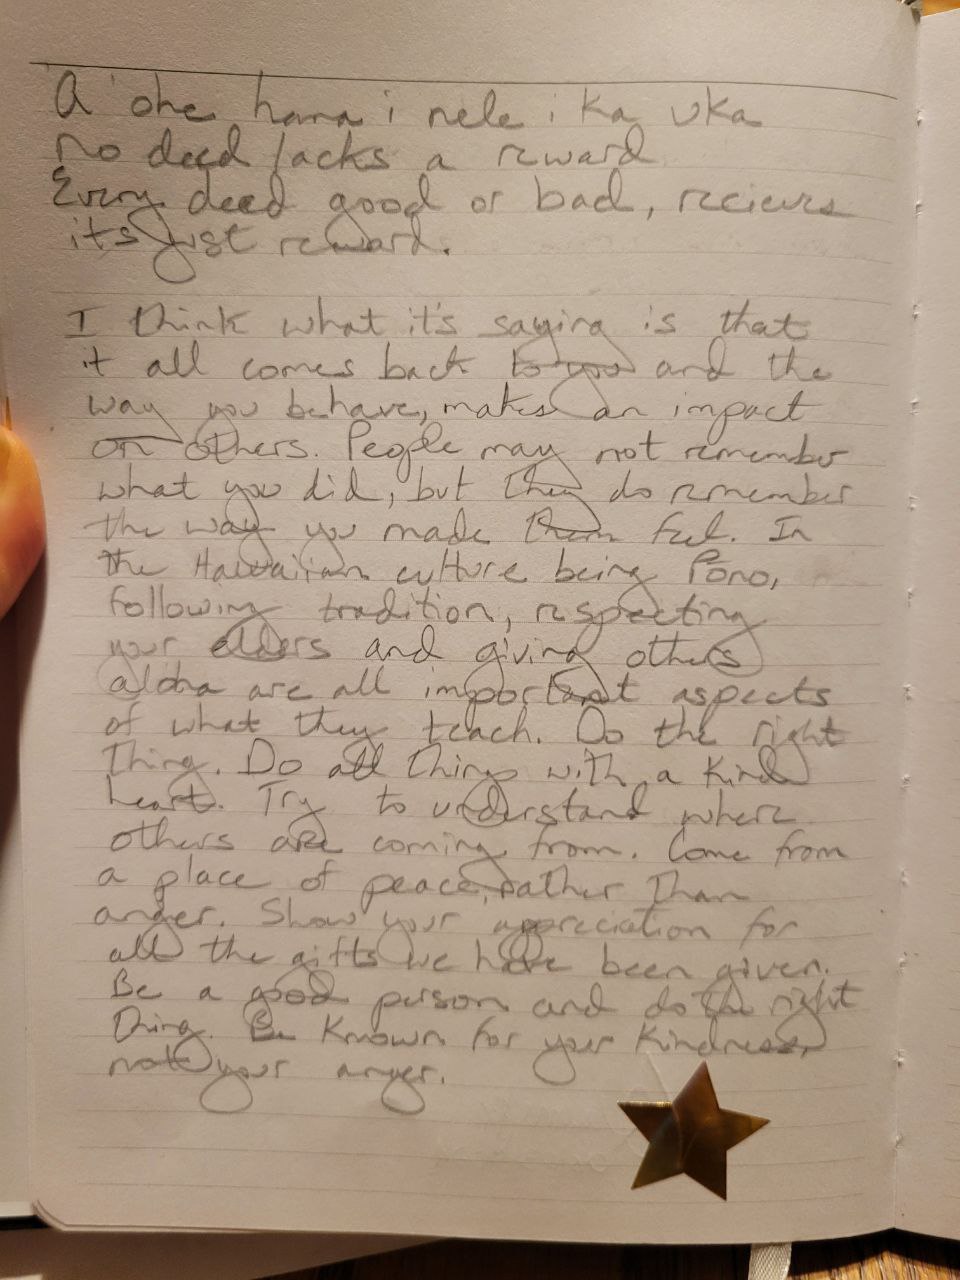 A'ohe hana i nele i ka uka
No deed lacks a reward
Every deed good or bad, recieves
it's just reward.
I think what it's saying is that
it all comes back to you and the
way you behave, makes an impact
on others. People may not remember
what you did, but they do remember
the way you made them feel. In
the Hawaiian culture being Pono,
following tradition, respecting
your elders and giving others
aloha are all important aspects
of what they teach. Do the right
thing. Do all things with a kind
heart. Try to understand where
others are coming from. Come from
a place of peace, rather than
anger. Show your appreciation for
all the gifts we have been given.
Be a good person and do the right
thing. Be known for your kindness,
not your anger.